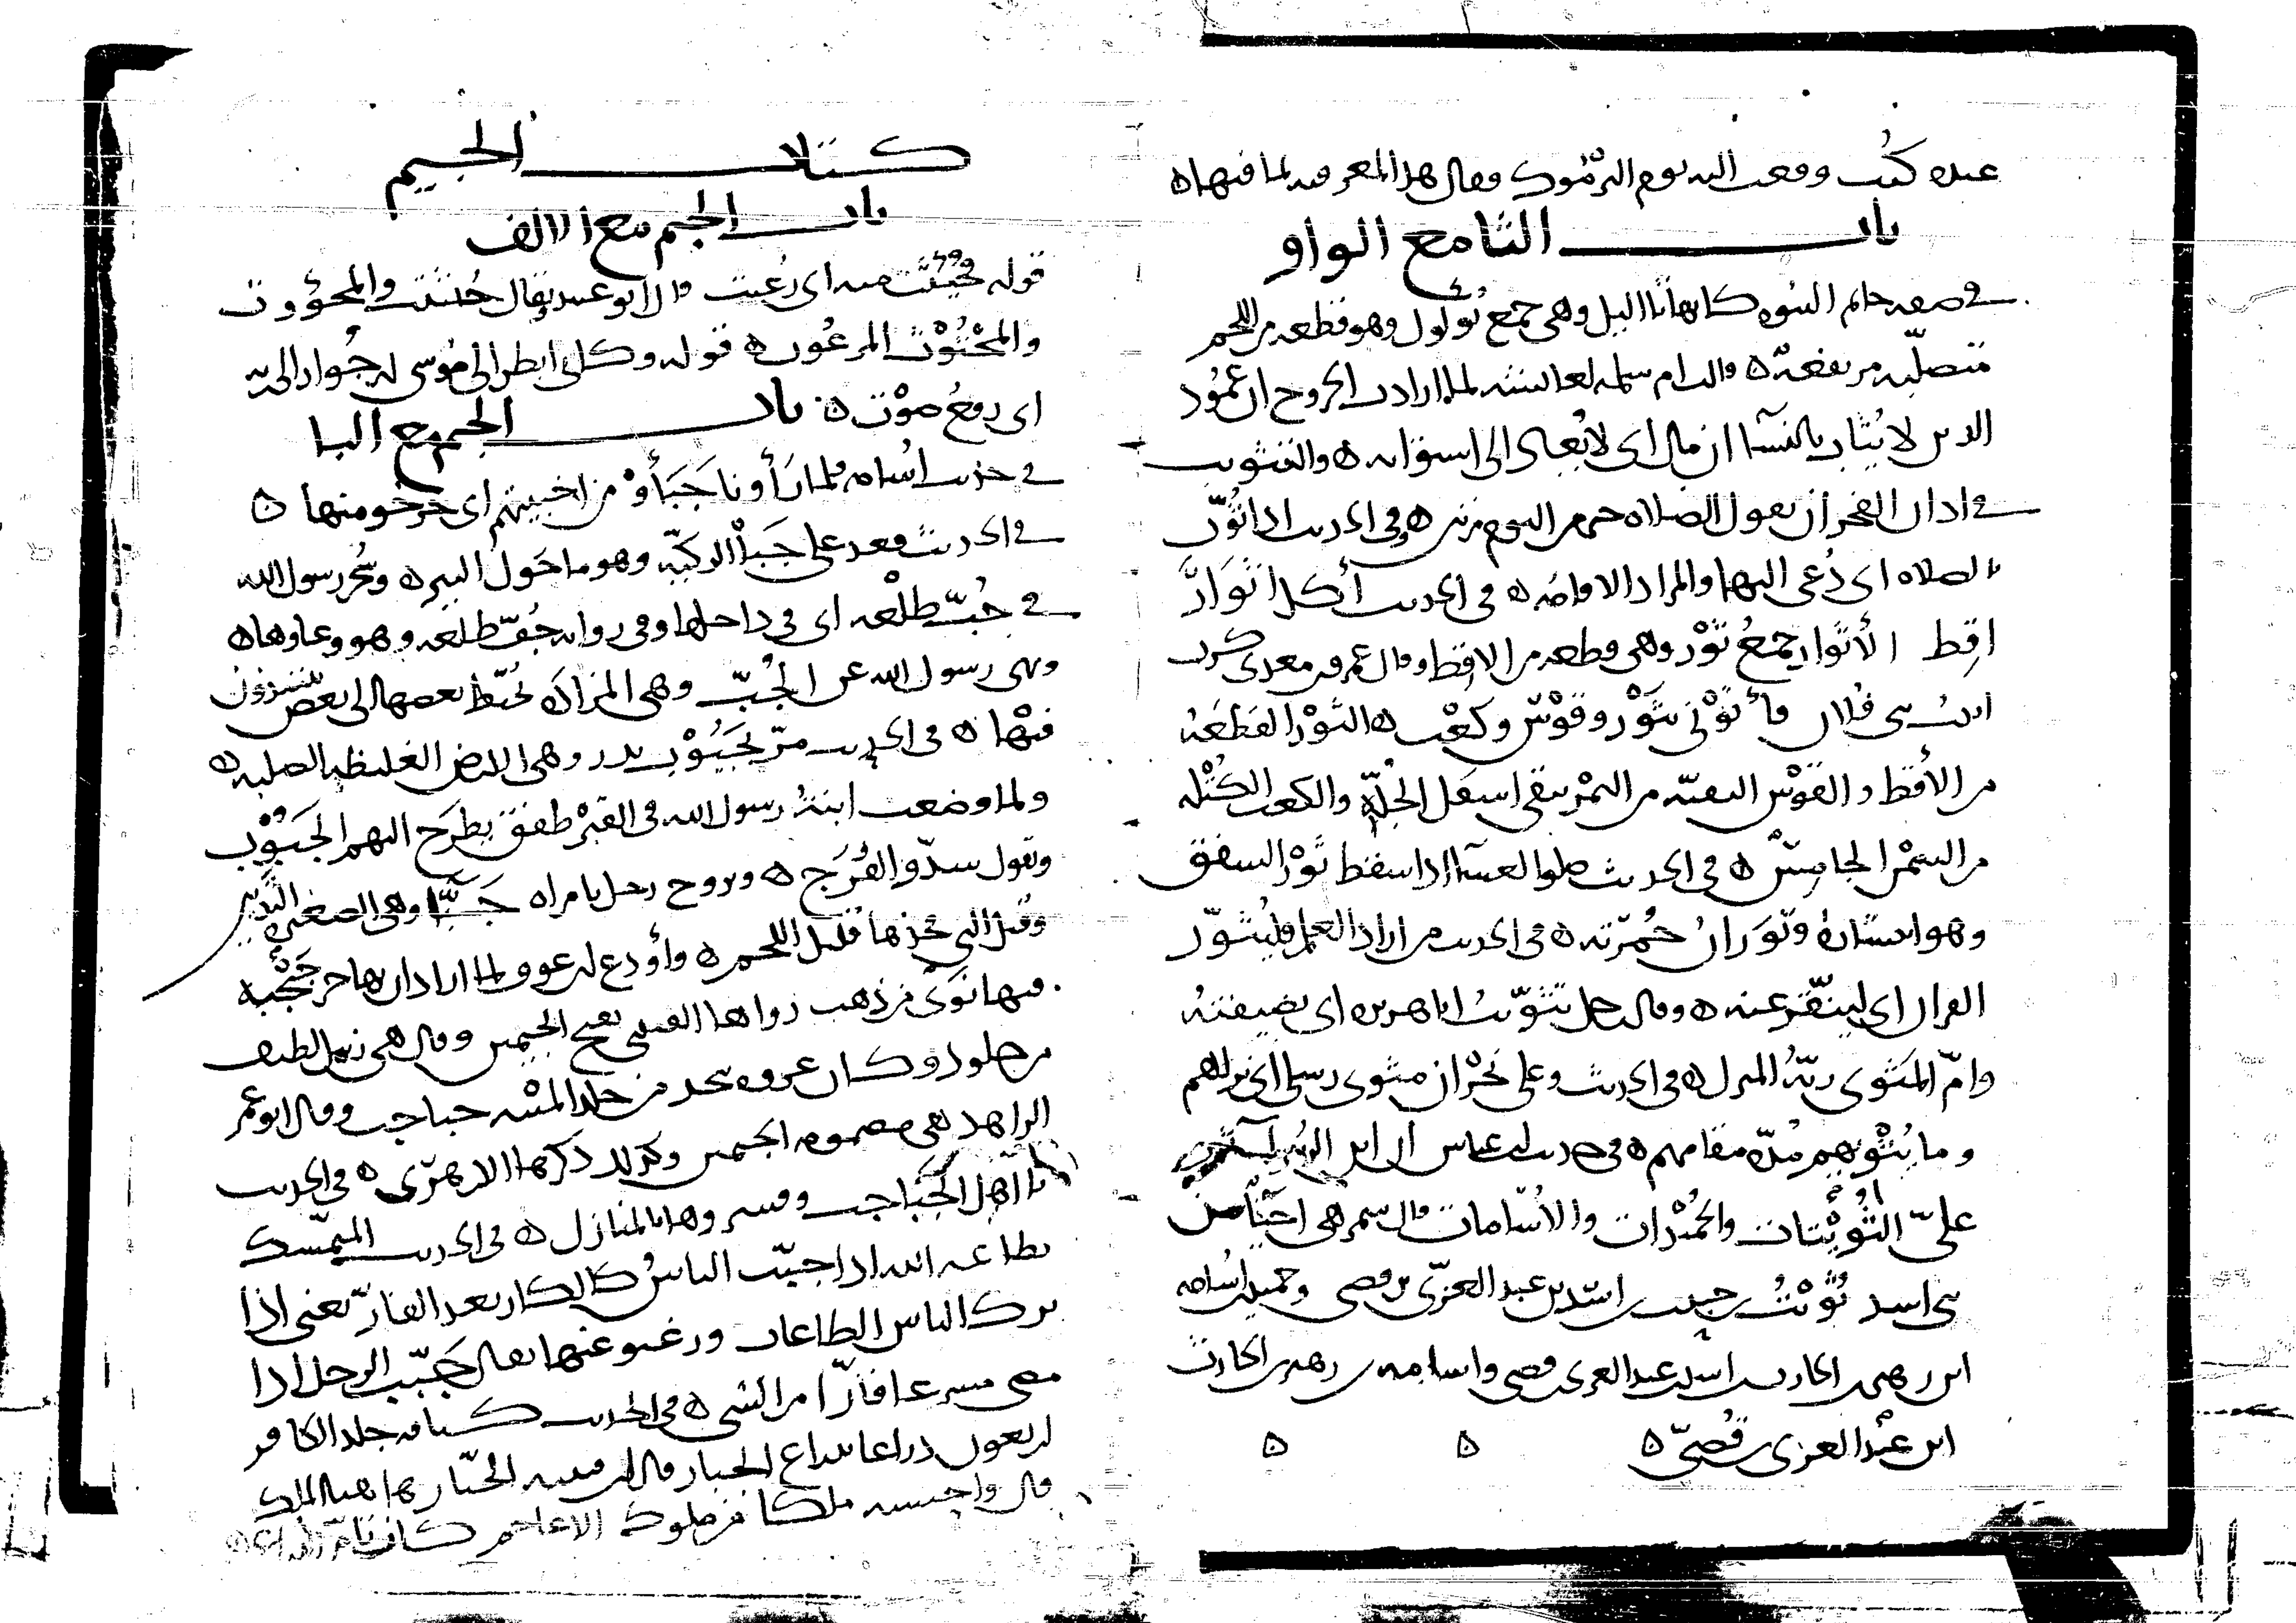 عنده كتب وقعت اليه يوم اليرموك وقال هذا المعرفته بما فيها ه
باب الثا مع الواو
في صفه خاتم النبوه كانها ثآاليل وهي جمع ثؤلول وهو قطعه من اللحم
متصلّبه مرتفعة ه قالت ام سلمه لعائشه لما ارادت الخروج ان عمود
الدين لا يُثاب بالنسآ ان مال اي لا يُعاد الى استوائه ه والتثويب
في اذان الفجر ان يقول الصلاه خير من النوم مرتين ه وفي الحديث اذا ثُوّب
بالصلاه اي دُعي اليها والمراد الاقامه ه في الحديث أكل اثوارَ
اقِط الأثوار جمعُ ثَوْر وهي قطعه من الاقِط وقال عمرو بن معدي كرب
اتيت بني فلان فأتَوْني بثَوْر وقَوْس وكَعْب ه الثَوْر القطعَهُ
من الأقط والقَوْس البقيّه من التمْر تبقى اسفل الجُلّة والكعب الكُتْله
من السمْن الجامِس ه في الحديث صلوا العشآ اذا سقط ثَوْر الشفق
وهو انتشارُه وثَوَرانُ حُمْرته ه في الحديث من اراد العلم فليُثوّر
القران اي لينقّر عنه ه وقال رجل تثوّيتُ ابا هريره اي تضيفتُه
وامّ المَثوى ربّةُ المنزل ه في الحديث وعلى نَجْران مثوى رسلي اي نزلهم
وما يُثْويهم مُدّة مقامهم ه في حديث ابن عباس ان ابن الزبير آثر
عليّ التُوَيْتات والحُمَيْدات والأُسامات قال شمر هي احيآء من
بني اسد تُوَيْتُ بن حبيب بن اسد بن عبد العزّى بن قصي وحميد بن اسامه
ابن زهير بن الحارث بن اسد بن عبد العزى بن قصي واسامه بن زهير بن الحارث
ابن عبْد العزى بن قُصيّ ه ه ه
كتاب الجيم
باب الجيم مع الالف
قوله فجُئِثْت منه اي رُعبت قال ابو عبيد يقال جُئثت والمجؤوث
والمجْثُوْث المرعُوب ه قوله وكاني انظر الى موسى له جُوار الى ربه
اي رفعُ صوْت ه باب الجيم مع البا
في حديث اسامه فلما رأونا جَبَأوْ من اخبيتهم اي خرجو منها ه
في الحديث فقعد على جَبَا الركيّه وهو ما حَول البير ه وسُحر رسول الله
في جُبّ طلْعه اي في داخلها وفي روايه جُفّ طلعه وهو وعاوها ه
ونهى رسول الله عن الجُبّ وهي المزاده يُخيّط بعضها الى بعض ينتبذون
فيْها ه في الحديث مرّ بجَبُوْب بدر وهي الارض الغليظه الصلبه ه
ولما وضعت ابنةُ رسول الله في القبْر طفق يطرَح اليهم الجَبُوْب
ويقول سدّو الفُرَج ه وتزوج رجل بامراه جَبَّآ وهي الصغيره الثديين
وقيل التي فخذها قليل اللحم ه وأودع ابن عوف لما اراد ان يهاجر جُبْجُبه
فيها نوى من ذهب رواها القتيبي بفتح الجيمين وقال هي زبيل لطيف
من جلود وكان عروه يتخذ من جلد الميته جباجب وقال ابو عمر
الزاهد هي مضمومه الجيمين وكذلك ذكرها الازهرّي ه في الحديث
يا اهل الجَباجب وفسروها بالمنازل ه في الحديث المتمّسك
بطاعه الله اذا جبّب الناسُ كالكار بعد الفارّ يعني اذا
ترك الناس الطاعات ورغبو عنها يقال جَبّب الرجل اذا
مضى مسرعا فارّا من الشي ه في الحديث كثافه جلد الكافر
اربعون ذراعا بذراع الجبار قال ابن قتيبه الجبّار هاهنا الملك
قال واحسبه ملكا من ملوك الاعاجم كان تامّ الذراع ه